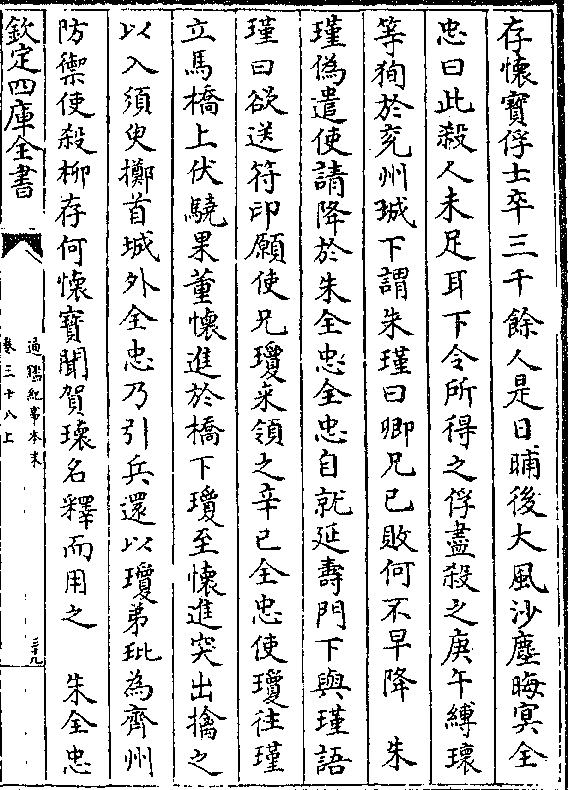 存懷寶俘士卒三千餘人是日晡後大風沙塵晦冥全
忠曰此殺人未足耳下令所得之俘盡殺之庚午縛瓌
等狥於兖州城下謂朱瑾曰卿兄已敗何不早降　朱
瑾偽遣使請降於朱全忠全忠自就延壽門下與瑾語
瑾曰欲送符印願使兄瓊来領之辛巳全忠使瓊往瑾
立馬橋上伏驍果董懷進於橋下瓊至懷進突出擒之
以入須臾擲首城外全忠乃引兵還以瓊弟玭為齊州
防禦使殺柳存何懷寶聞賀瓌名釋而用之　朱全忠
欽定四庫全書
通鑑紀事本末
卷三十八上
三十九